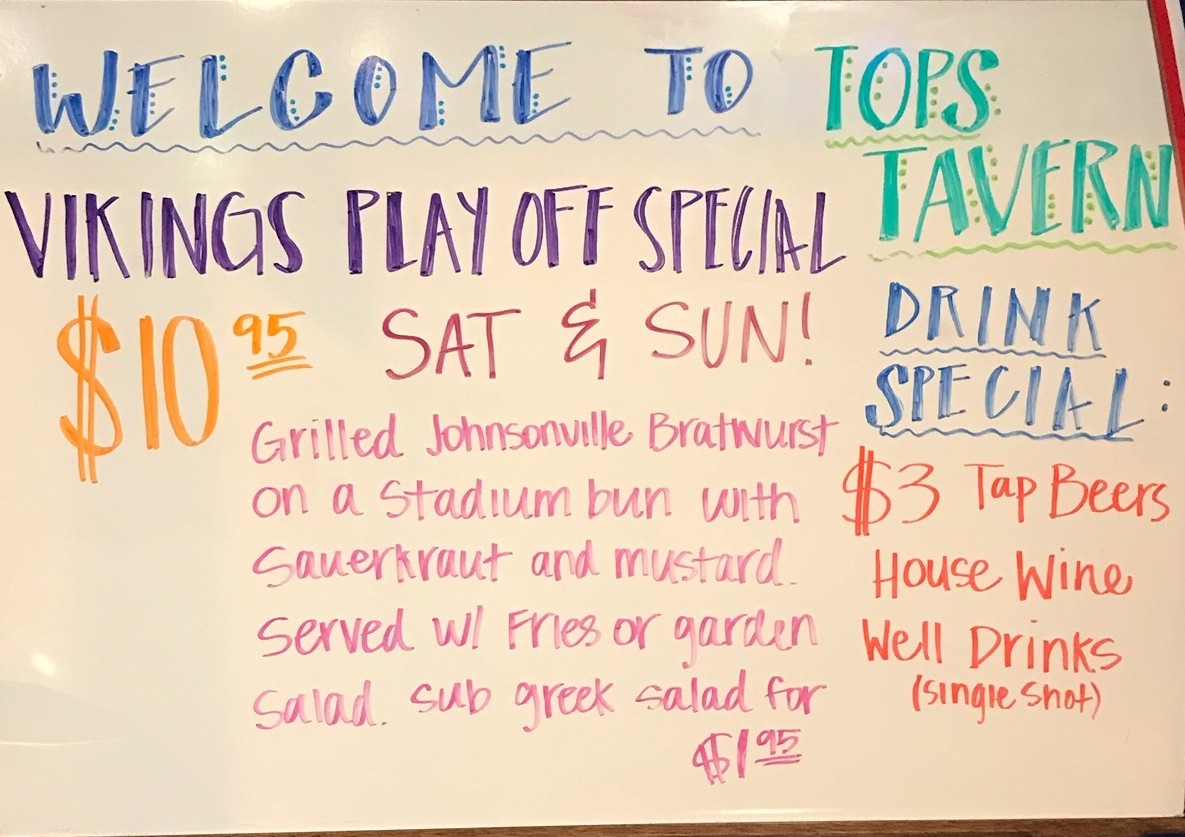 WELCOME TO TOPS
TAVERN
VIKINGS PLAY OFF SPECIAL
$10 95 SAT & SUN!
Grilled Johnsonville Bratwurst
on a Stadium bun with
Sauerkraut and mustard.
Served w/ Fries or garden
Salad. sub greek salad for
$1 95
DRINK
SPECIAL:
$3 Tap Beers
House Wine
Well Drinks
(single shot)